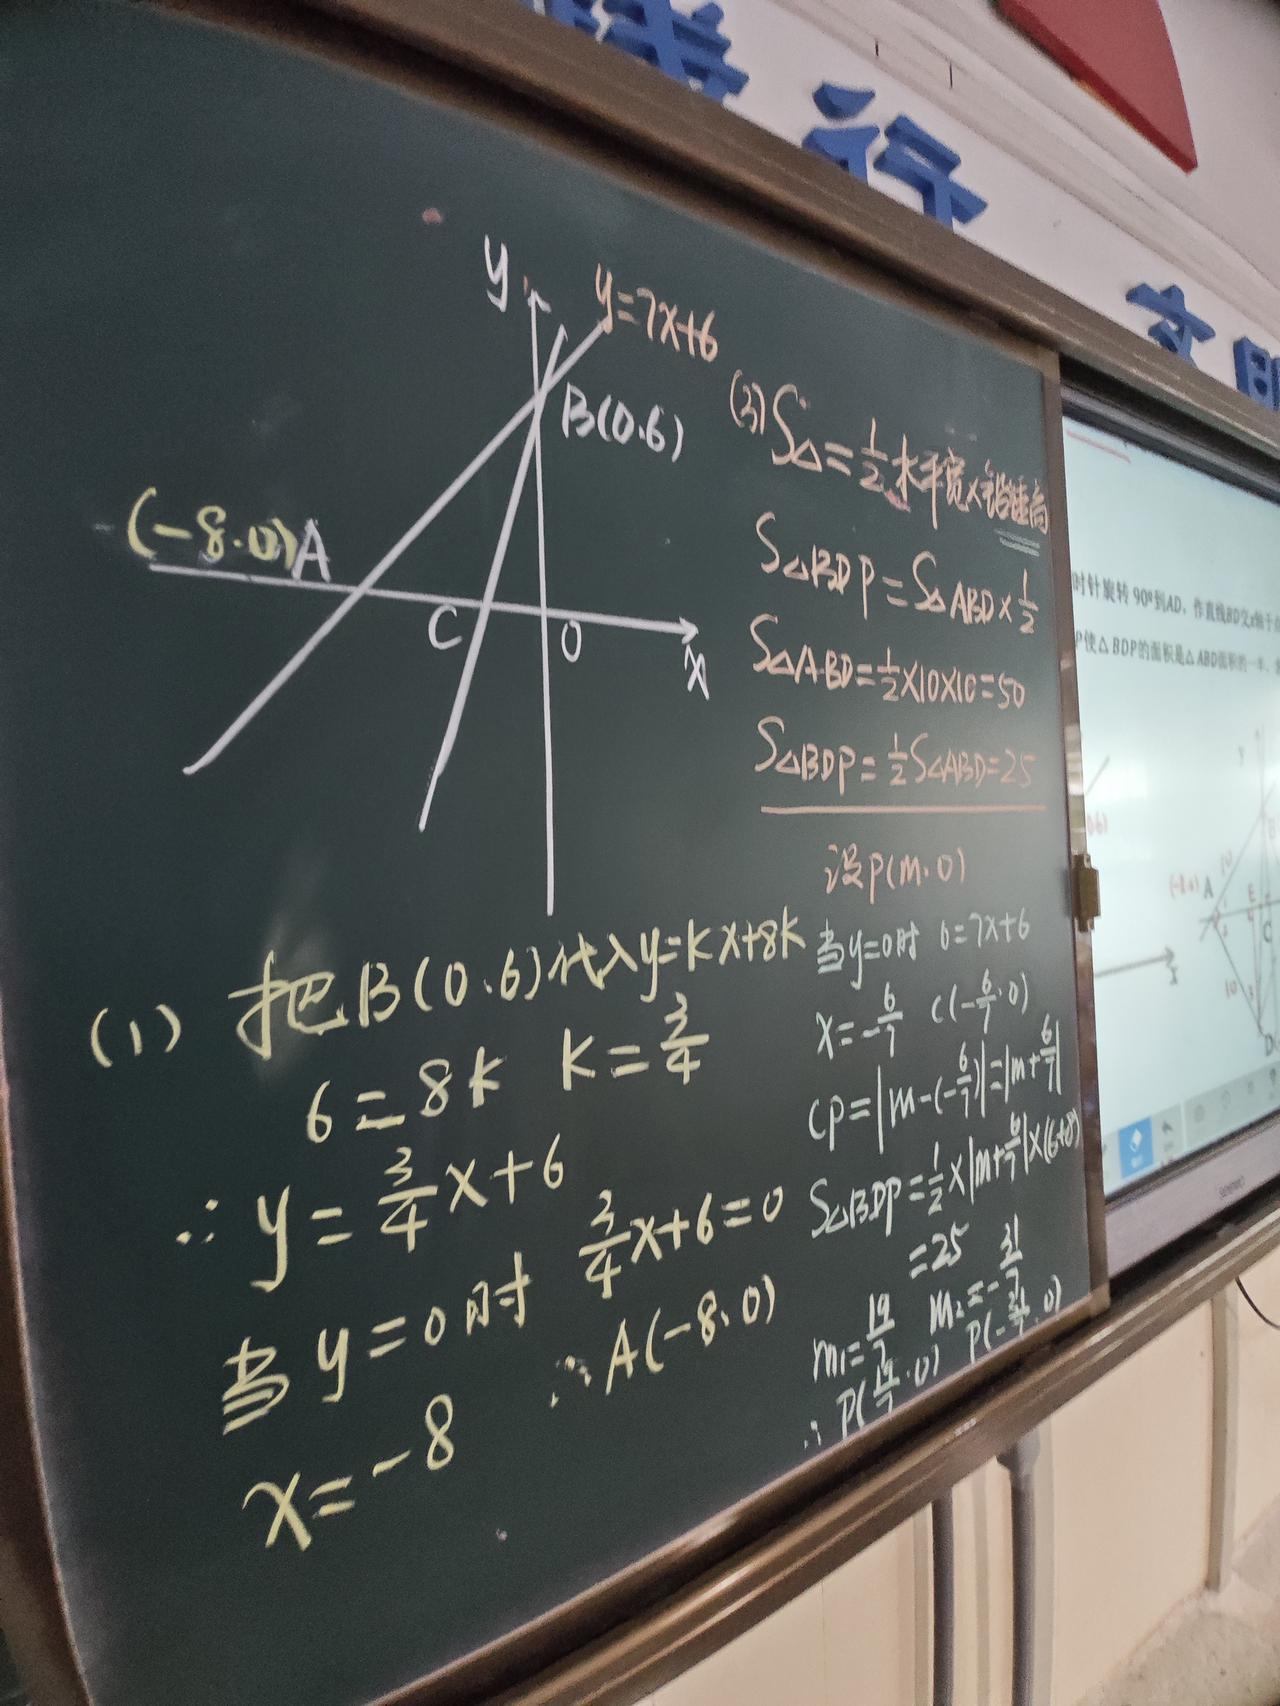 行
文明
y
y=7x+6
B(0.6)
(-8.0)A
C
O
X
(3) S△=1/2水平宽×铅锤高
S△BDP=S△ABD×1/2
S△ABD=1/2×10×10=50
S△BDP=1/2S△ABD=25
设P(m.0)
当y=0时 0=7x+6
x=-6/7 C(-6/7.0)
CP=|m-(-6/7)|=|m+6/7|
S△BDP=1/2×|m+6/7|×(6+8)
=25
m₁=19/7 m₂=-31/7
∴P(19/7.0) P(-31/7.0)
(1) 把B(0.6)代入y=kx+8k
6=8k k=3/4
∴y=3/4x+6
当y=0时 3/4x+6=0
x=-8 ∴A(-8.0)
时针旋转90°到AD，作直线BD交x轴于
P使△BDP的面积是△ABD面积的一半
(-8.0) A
10
B
E
C
10
D